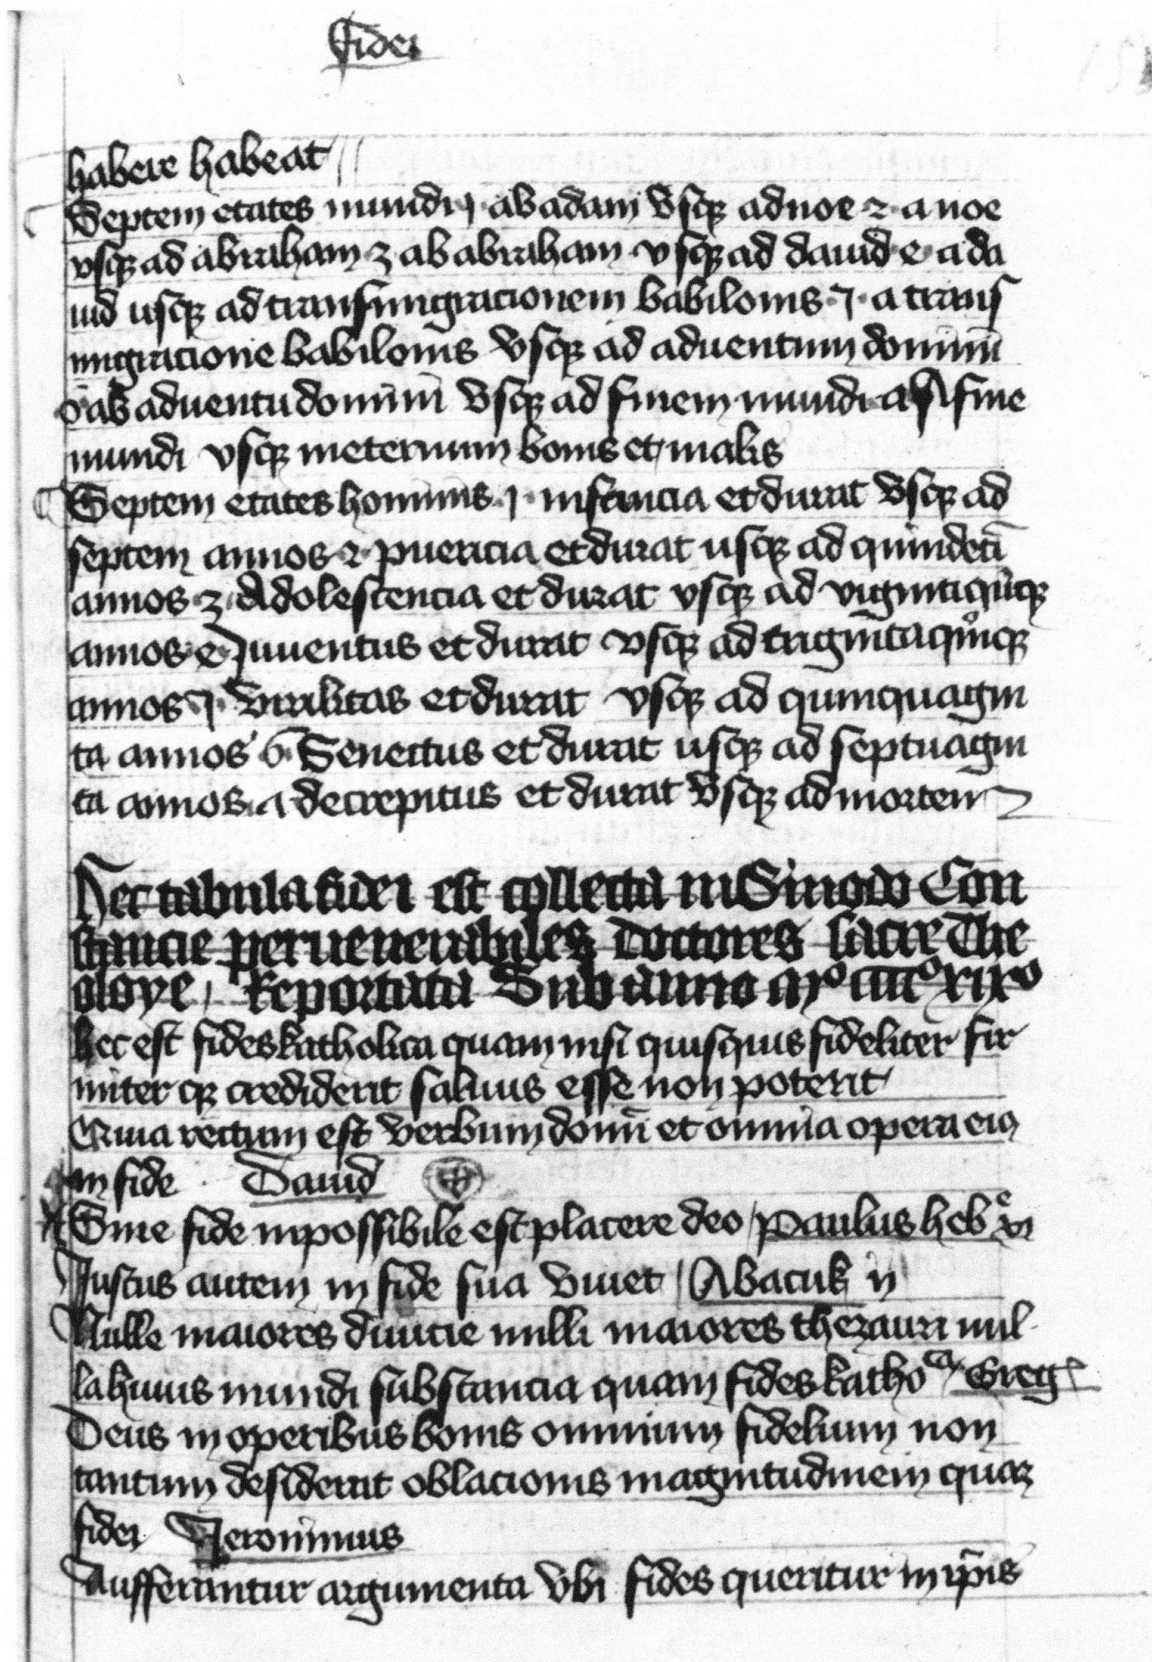 Fidei
habere habeat
Septem etates mundi 1 ab adam vsq3 ad noe 2 a noe
vsq3 ad abraham 3 ab abraham vsq3 ad dauid 4 a da
uid usq3 ad transmigracionem babilonis 5 a trans
migracione babilonis vsq3 ad aduentum domini
6 ab aduentu domini vsq3 ad finem mundi 7 A fine
mundi vsq3 ineternum bonis et malis
Septem etates hominis 1 infancia et durat vsq3 ad
septem annos 2 puericia et durat usq3 ad quindecī
annos 3 Adolescencia et durat vsq3 ad vigintiqūq3
annos 4 Juuentus et durat vsq3 ad trigīntaqinq3
annos 5 virilitas et durat vsq3 ad quinquagin
ta annos 6 Senectus et durat usq3 ad septuagin
ta annos 7 decrepitus et durat vsq3 ad mortem
Hec tabula fidei est collecta in Sinodo Con
stancie per venerabiles doctores sacre The
oloye Reportata Sub anno mo cccco xixo
hec est fides katholica quam nisi quisquis fideliter fir
miter q3 crediderit saluus esse non poterit
Quia rectum est verbum domī et omnia opera eius
in fide Dauid
Sine fide inpossibile est placere deo paulus heb xi
Justus autem in fide sua viuet Abacuk ij
Nulle maiores diuicie nulli maiores thezauri nul
la huius mundi substancia quam fides kathoca Greg
Deus in operibus bonis omnium fidelium non
tantum desiderat oblacionis magnitudinem quam
fidei Jeronimus
Aufferantur argumenta vbi fides queritur in ip̄is